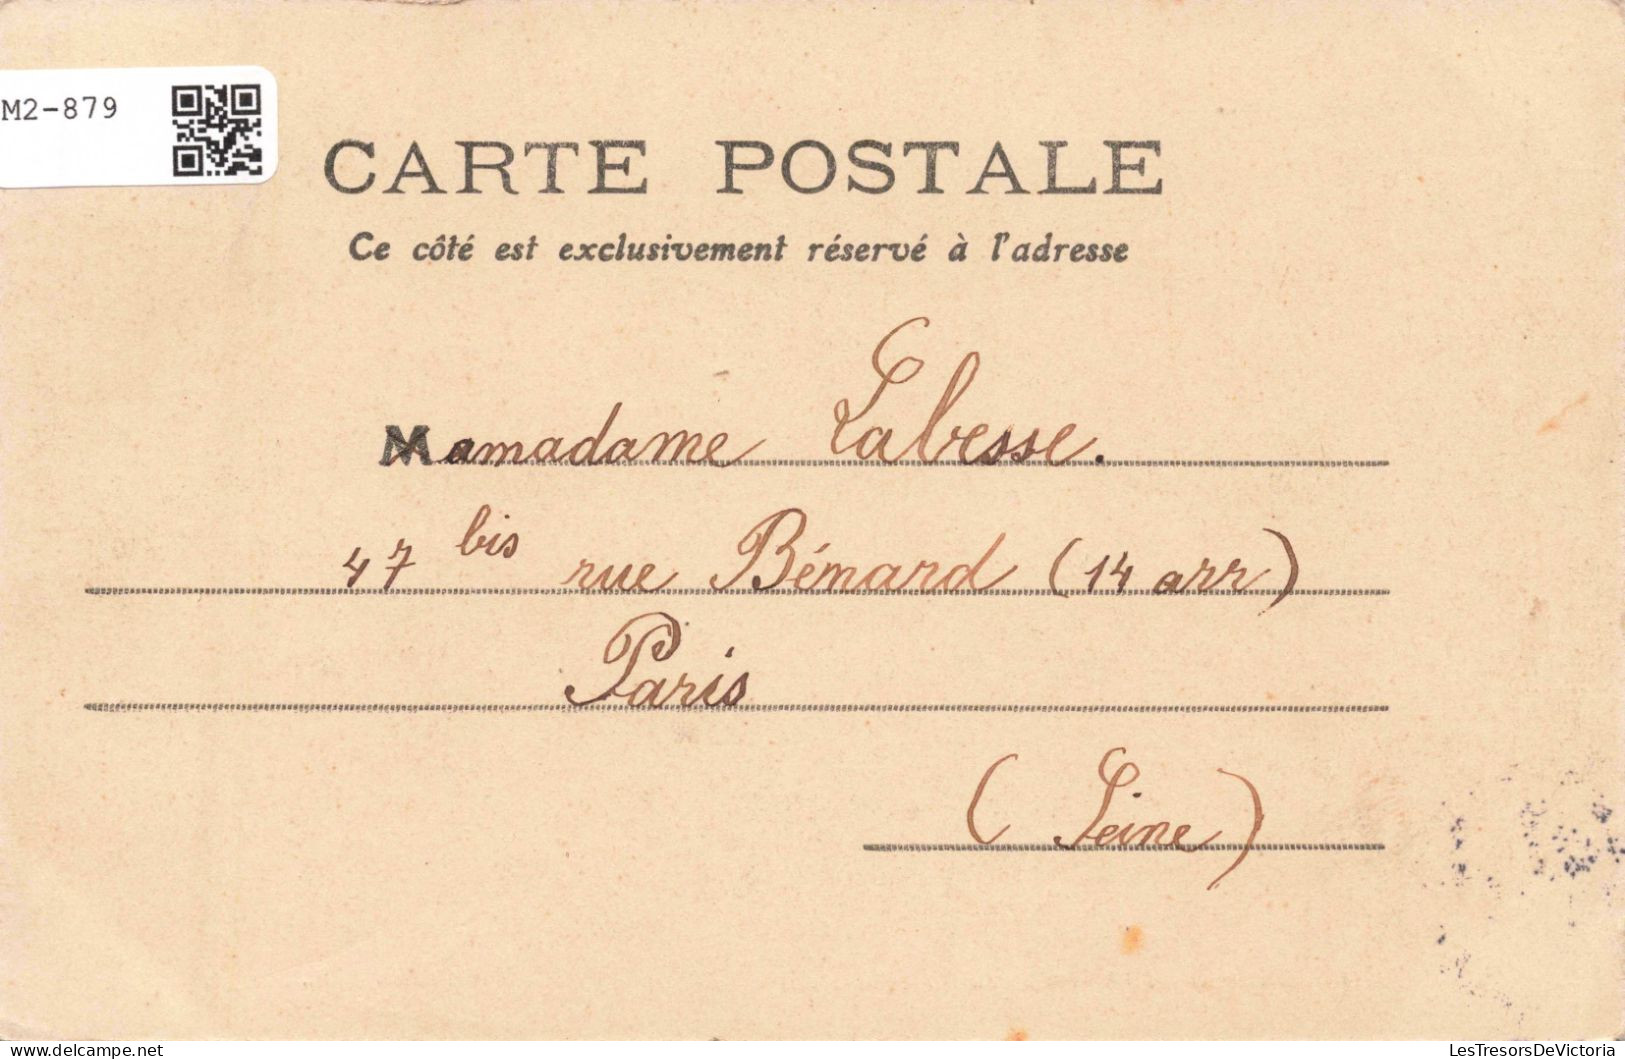 M2-879
CARTE POSTALE
Ce côté est exclusivement réservé à l'adresse
Mamadame Labesse.
47 bis rue Bénard (14 arr)
Paris
(Seine)
LesTresorsDeVictoria